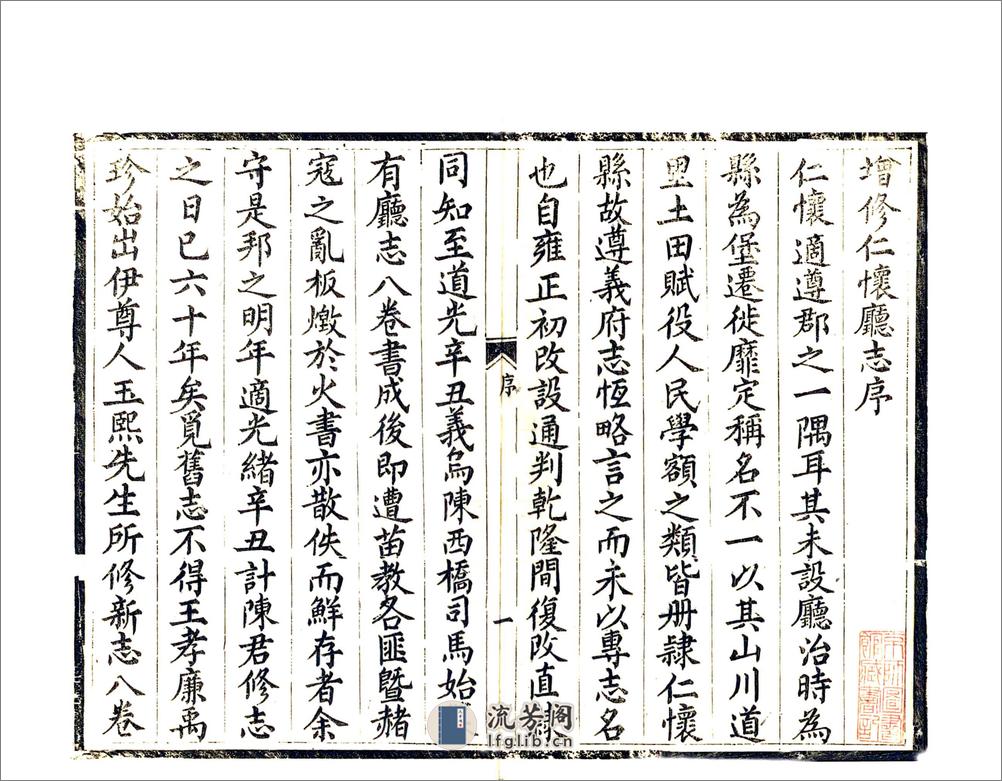 增修仁懷廳志序
仁懷適遵郡之一隅耳其未設廳治時為
縣為堡遷徙靡定稱名不一以其山川道
里土田賦役人民學額之類皆册隸仁懷
縣故遵義府志恆略言之而未以專志名
也自雍正初改設通判乾隆間復改直隸
同知至道光辛丑義烏陳西橋司馬始
有廳志八卷書成後即遭苗教各匪暨赭
寇之亂板燬於火書亦散佚而鮮存者余
守是邦之明年適光緒辛丑計陳君修志
之日已六十年矣覓舊志不得王孝廉禹
珍始出伊尊人玉熙先生所修新志八卷
序
一
流芳阁
lfglib.cn